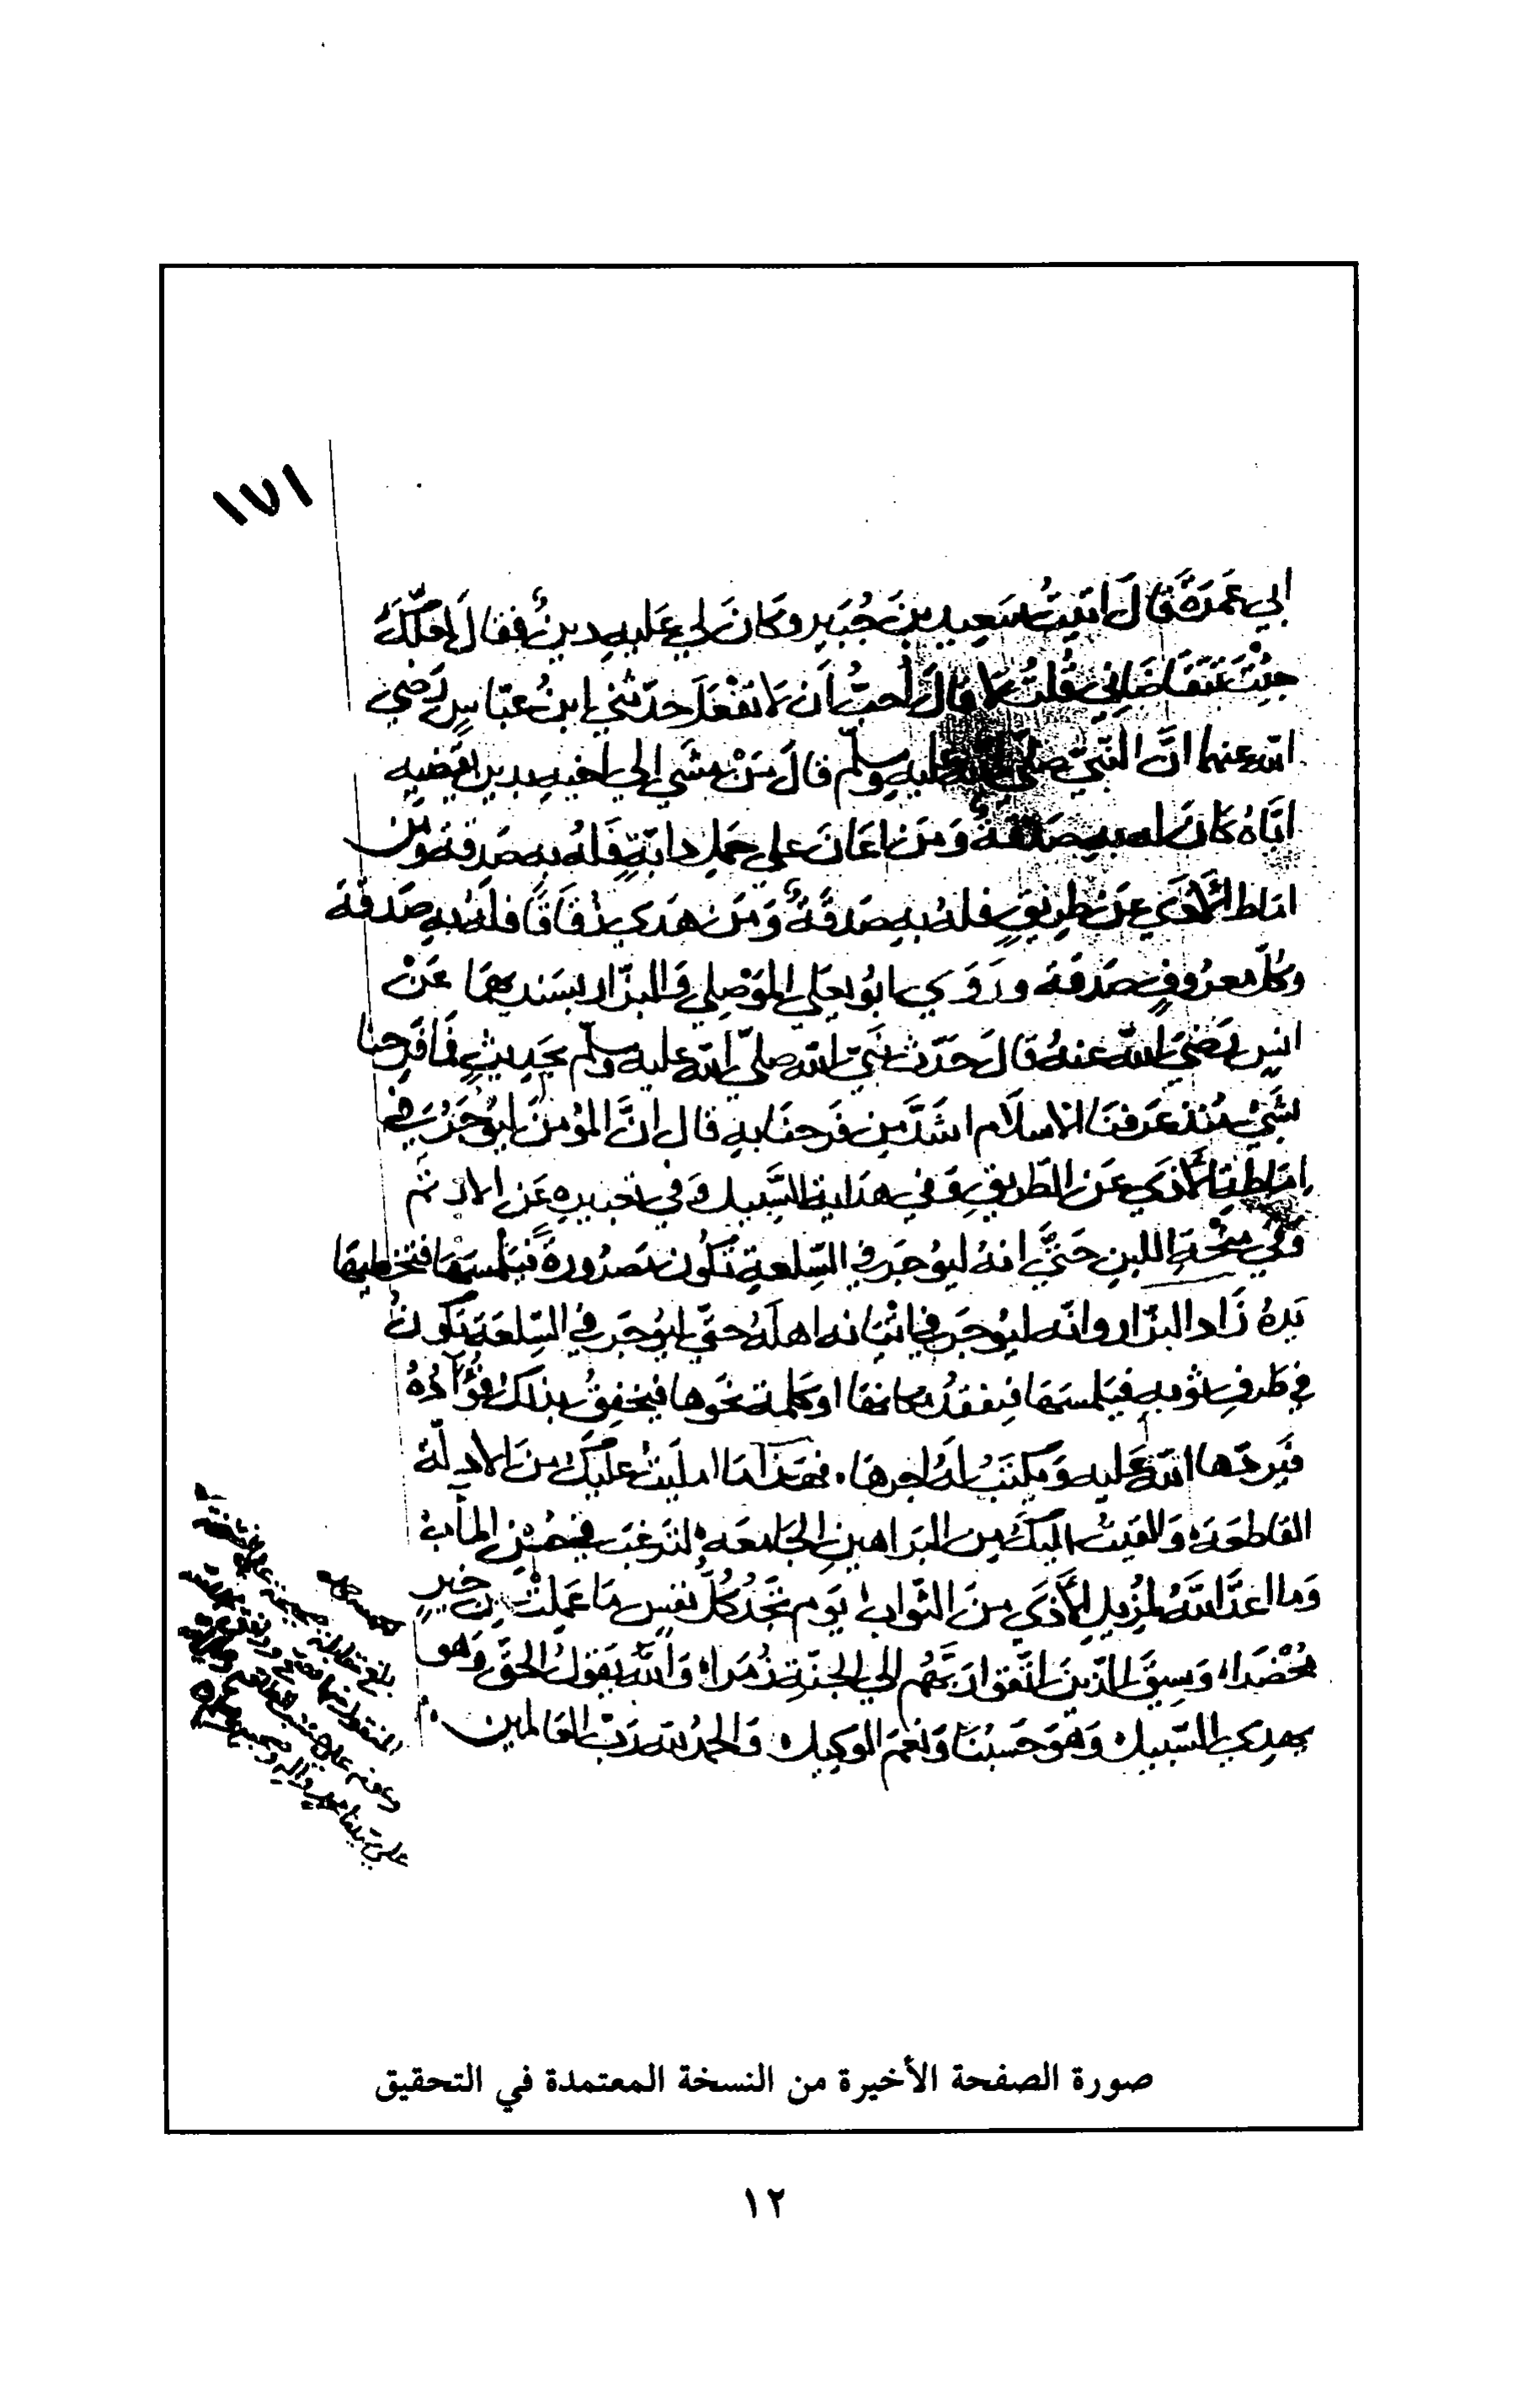 ١٧١
ابي عَمرَة قَالَ اتيتُ سَعِيد بن جُبَير وكَانَ لي عَليهِ دينٌ فقالَ لعَلّكَ
جئتَ تتقاضاني قُلتُ لا قالَ أحبُّ أن لا تفعَل حَدّثني ابنُ عبّاسٍ رَضي
الله عنهما انَّ النّبيّ صلّى الله عليهِ وسلّم قالَ مَنْ مشَى إلى اخيهِ بدين يقضيه
ايّاهُ كانَ له بهِ صدقةٌ وَمَن اعَانَ على حَمل دابّةٍ فَلهُ بهِ صَدقة ومن
اماط الأذى عَن طريقٍ فلهُ بهِ صَدقَةٌ وَمَن هدَى زقَاقًا فلهُ بهِ صَدقَة
وكلّ معرُوفٍ صَدقَة ورَوَى ابو يعلى الموَصِلي وَالبزّار بسَنديهمَا عَنْ
انسٍ رَضيَ الله عنهُ قالَ حَدّث نبيّ الله صلّى الله عليه وسلّم بحَدِيثٍ فمَا فَرِحنا
بشَيْءٍ مُنذ عَرفنَا الاسلَام اشَدَّ مِن فَرحنَا بهِ قال انَّ المؤمنَ ليُوجَرُ في
إمَاطةِ الأذَى عَن الطّريقِ وَفي هدَايةِ السَّبيل وَفي تعبيرِهِ عَن الارثم
وَفي مِنْحَةِ اللبنِ حَتَّى انهُ ليُوجَر في السّلعةِ تكُون مَصرُورةً فيَلمسهَا فتخطيهَا
يَدهُ زَاد البزّار وانّه ليُوجَر في إتيَانه اهلَهُ حتّى ليُوجَر في السّلعَة تكُونُ
في طَرفِ ثوبهِ فيَلمسهَا فيفقدُ مكانهَا او كلمة نحوهَا فيَخفِقُ بذلكَ فُؤَادُهُ
فيَردّها الله عَليه وَيكتبُ لهُ اجرهَا. فهذا ما امليتُ عليكَ منَ الادلّة
القاطعَة وَالقيتُ اليكَ مِن البَراهينِ الجَامعَه لترغبَ في حُسْنِ المآبِ
وَما اعَدَّ اللهُ لمزيلِ الأذَى منَ الثّوابِ يَوم تجَدُ كُلُّ نفسٍ مَا عَمِلتْ مِن خيرٍ
مُحْضَرا وَسِيقَ الذينَ اتّقوا رَبّهُم إلى الجنّةِ زُمَرا وَاللهُ يَقولُ الحقّ وَهو
يهدي السّبيل وَهوَ حَسبُنَا وَنعمَ الوَكيل وَالحمدُ لله رَبّ العَالمين
بلغ مقابلة
صورة الصفحة الأخيرة من النسخة المعتمدة في التحقيق
١٢